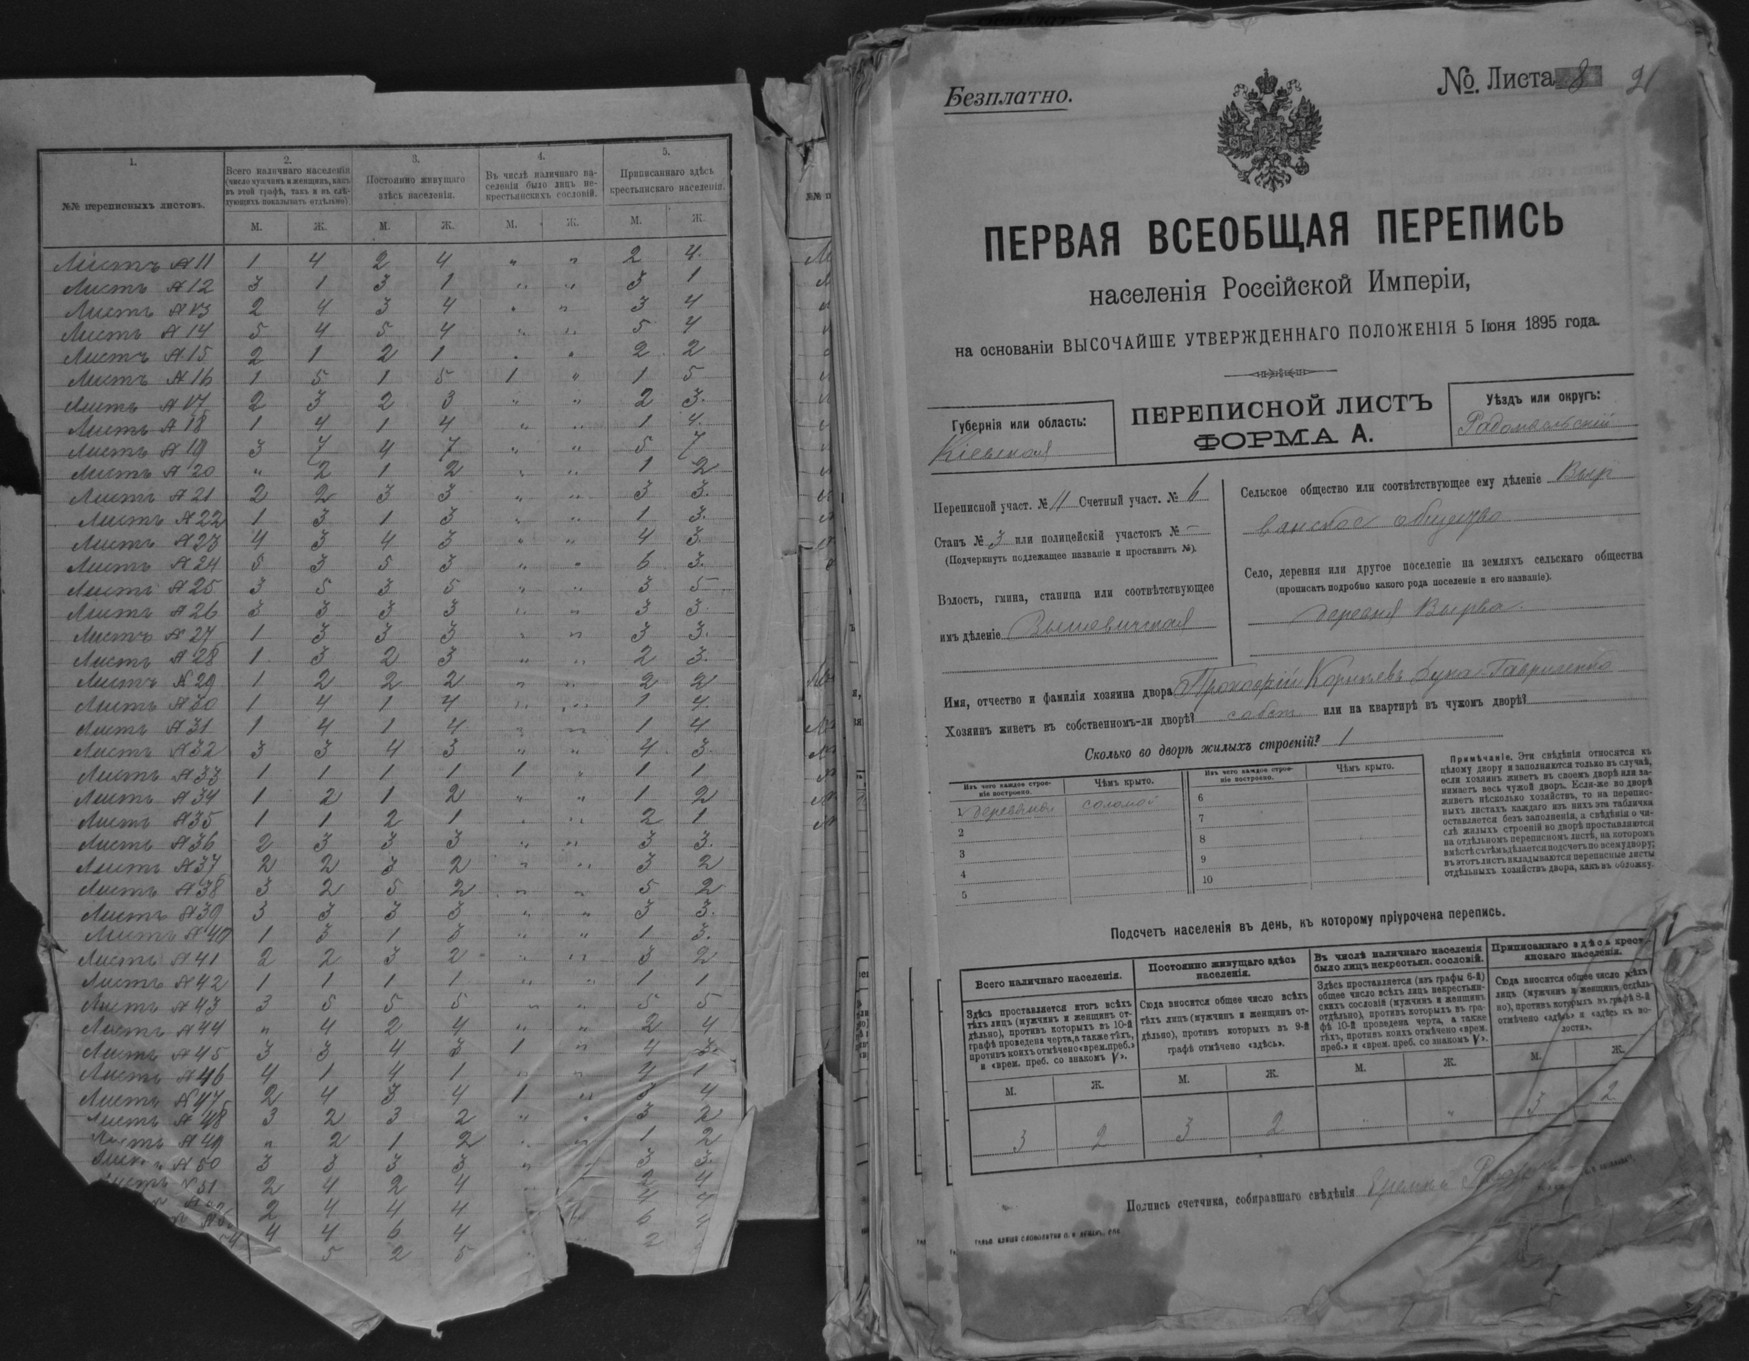 1.
2.
3.
4.
5.
№№ переписныхъ листовъ.
Всего наличнаго населенія
(число мужчинъ и женщинъ, какъ
въ этой графѣ, такъ и въ слѣ-
дующихъ показывать отдѣльно)
Постоянно живущаго
здѣсь населенія.
Въ числѣ наличнаго на-
селенія было лицъ не-
крестьянскихъ сословій.
Приписаннаго здѣсь
крестьянскаго населенія.
М. Ж. М. Ж. М. Ж. М. Ж.
Листъ № 11 1 4 2 4 „ „ 2 4.
Листъ № 12 3 1 3 1 „ „ 3 1
Листъ № 13 2 4 3 4 „ „ 3 4
Листъ № 14 5 4 5 4 „ „ 5 4
Листъ № 15 2 1 2 1 „ „ 2 2
Листъ № 16 1 5 1 5 1 „ 1 5
Листъ № 17 2 3 2 3 „ „ 2 3.
Листъ № 18 1 4 1 4 „ „ 1 4.
Листъ № 19 3 7 4 7 „ „ 5 7
Листъ № 20 „ 2 1 2 „ „ 1 2
Листъ № 21 2 2 3 3 „ „ 3 3.
Листъ № 22 1 3 1 3 „ „ 1 3.
Листъ № 23 4 3 4 3 „ „ 4 3.
Листъ № 24 5 3 5 3 „ „ 6 3.
Листъ № 25 3 5 3 5 „ „ 3 5
Листъ № 26 3 3 3 3 „ „ 3 3.
Листъ № 27 1 3 3 3 „ „ 3 3.
Листъ № 28 1 3 2 3 „ „ 2 3.
Листъ № 29 1 2 2 2 „ „ 2 2
Листъ № 30 1 4 1 4 „ „ 1 4.
Листъ № 31 1 4 1 4 „ „ 1 4
Листъ № 32 3 3 4 3 „ „ 4 3.
Листъ № 33 1 1 1 1 1 „ 1 1
Листъ № 34 1 2 1 2 „ „ 1 2
Листъ № 35 1 1 2 1 „ „ 2 1
Листъ № 36 2 3 3 3 „ „ 3 3.
Листъ № 37 2 2 3 2 „ „ 3 2
Листъ № 38 3 2 5 2 „ „ 5 2
Листъ № 39 3 3 3 3 „ „ 3 3.
Листъ № 40 1 3 1 3 „ „ 1 3.
Листъ № 41 2 2 3 2 „ „ 3 2
Листъ № 42 1 1 1 1 „ „ 1 1
Листъ № 43 3 5 5 5 „ „ 5 5
Листъ № 44 „ 4 2 4 „ „ 2 4
Листъ № 45 3 3 4 3 1 „ 4 3.
Листъ № 46 4 1 4 1 „ „ 4 1
Листъ № 47 2 4 3 4 1 „ 3 4
Листъ № 48 3 2 3 2 „ „ 3 2
Листъ № 49 „ 2 1 2 „ „ 1 2
№ 50 3 3 3 3 „ „ 3 3.
№ 51 2 4 2 4 2 4
2 4 4 4 4 4
4 4 6 4 6 4
5 2 5 2
Безплатно.
№. Листа 8 21
ПЕРВАЯ ВСЕОБЩАЯ ПЕРЕПИСЬ
населенія Россійской Имперіи,
на основаніи ВЫСОЧАЙШЕ УТВЕРЖДЕННАГО ПОЛОЖЕНІЯ 5 Іюня 1895 года.
Губернія или область:
Кіевская
ПЕРЕПИСНОЙ ЛИСТЪ
ФОРМА А.
Уѣздъ или округъ:
Радомысльскій
Переписной участ. № 11 Счетный участ. № 6
Станъ № 3 или полицейскій участокъ № -
(Подчеркнуть подлежащее названіе и проставить №).
Волость, гмина, станица или соотвѣтствующее
имъ дѣленіе Вышевичская
Сельское общество или соотвѣтствующее ему дѣленіе Выр
ванское общество
Село, деревня или другое поселеніе на земляхъ сельскаго общества
(прописать подробно какого рода поселеніе и его названіе).
деревня Вырва.
Имя, отчество и фамилія хозяина двора Прокофій Корнѣевъ Гавриленко
Хозяинъ живетъ въ собственномъ-ли дворѣ? собст или на квартирѣ въ чужомъ дворѣ?
Сколько во дворѣ жилыхъ строеній? 1
Изъ чего каждое строе-
ніе построено.
Чѣмъ крыто.
Изъ чего каждое строе-
ніе построено.
Чѣмъ крыто.
1 деревянн соломой
2
3
4
5
6
7
8
9
10
Примѣчаніе. Эти свѣдѣнія относятся къ
цѣлому двору и заполняются только въ случаѣ,
если хозяинъ живетъ въ своемъ дворѣ или за-
нимаетъ весь чужой дворъ. Если-же во дворѣ
живетъ нѣсколько хозяйствъ, то на перепис-
ныхъ листахъ каждаго изъ нихъ эта табличка
оставляется безъ заполненія, а свѣдѣнія о чи-
слѣ жилыхъ строеній во дворѣ проставляются
на отдѣльномъ переписномъ листѣ, на которомъ
вмѣстѣ съ тѣмъ дѣлается подсчетъ по всему двору;
въ этотъ листъ вкладываются переписные листы
отдѣльныхъ хозяйствъ двора, какъ въ обложку.
Подсчетъ населенія въ день, къ которому пріурочена перепись.
Всего наличнаго населенія.
Здѣсь проставляется итогъ всѣхъ
тѣхъ лицъ (мужчинъ и женщинъ от-
дѣльно), противъ которыхъ въ 10-й
графѣ проведена черта, а также тѣхъ,
противъ коихъ отмѣчено «врем. преб.»
и «врем. преб. со знакомъ V».
Постоянно живущаго здѣсь
населенія.
Сюда вносится общее число всѣхъ
тѣхъ лицъ (мужчинъ и женщинъ от-
дѣльно), противъ которыхъ въ 9-й
графѣ отмѣчено «здѣсь».
Въ числѣ наличнаго населенія
было лицъ некрестьян. сословій.
Здѣсь проставляется (изъ графы 6-й)
общее число всѣхъ лицъ некрестьян-
скихъ сословій (мужчинъ и женщинъ
отдѣльно), противъ которыхъ въ гра-
фѣ 10-й проведена черта, а также
тѣхъ, противъ коихъ отмѣчено «врем.
преб.» и «врем. преб. со знакомъ V».
Приписаннаго здѣсь крест-
янскаго населенія.
Сюда вносится общее число всѣхъ
лицъ (мужчинъ и женщинъ отдѣль-
но), противъ которыхъ въ графѣ 8-й
отмѣчено «здѣсь» и «здѣсь къ во-
лости».
М. Ж. М. Ж. М. Ж. М. Ж.
3 2 3 2 „ „ 3 2
Подпись счетчика, собиравшаго свѣдѣнія